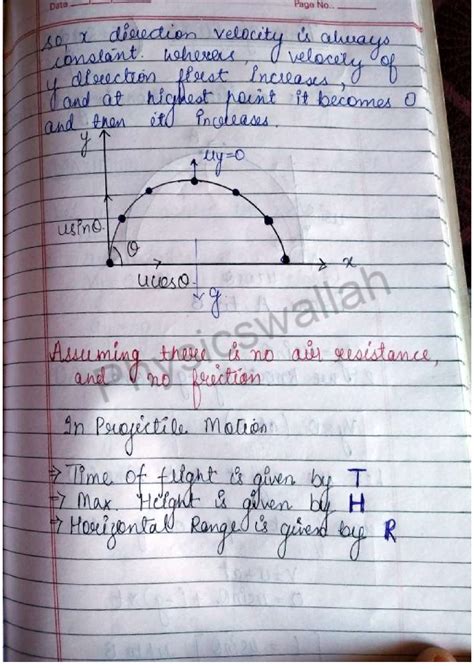 Date
Page No.
so, x direction velocity is always
constant. whereas, velocity of
y direction first Increases,
and at highest point it becomes 0
and then it increases.
y
uy=0
usinθ
θ
ucosθ
x
g
Physicswallah
Assuming there is no air resistance,
and no friction
In Projectile Motion
→ Time of flight is given by T
→ Max. Height is given by H
→ Horizontal Range is given by R